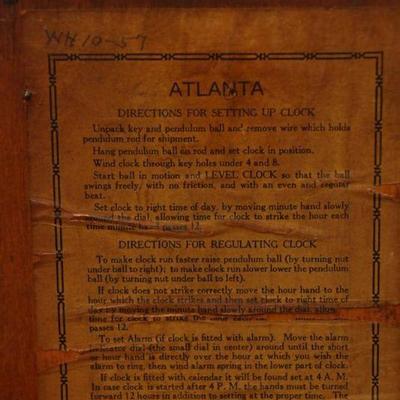 WH 10-57
ATLANTA
DIRECTIONS FOR SETTING UP CLOCK
Unpack key and pendulum ball and remove wire which holds
pendulum rod for shipment.
Hang pendulum ball on rod and set clock in position.
Wind clock through key holes under 4 and 8.
Start ball in motion and LEVEL CLOCK so that the ball
swings freely, with no friction, and with an even and regular
beat.
Set clock to right time of day, by moving minute hand slowly
around the dial, allowing time for clock to strike the hour each
time minute passes 12.
DIRECTIONS FOR REGULATING CLOCK
To make clock run faster raise pendulum ball (by turning nut
under ball to right); to make clock run slower lower the pendulum
ball (by turning nut under ball to left).
If clock does not strike correctly move the hour hand to the
hour which the clock strikes and then set clock to right time of
day by moving the minute hand slowly around the dial,
time for clock to strike the
passes 12.
To set Alarm (if clock is fitted with alarm). Move the alarm
indicator dial (the small dial in center) around until the short
or hour hand is directly over the hour at which you wish the
alarm to ring, then wind alarm spring in the lower part of clock.
If clock is fitted with calendar it will be found set at 4 A. M.
In case clock is started after 4 P. M. the hands must be turned
forward 12 hours in addition to setting at the proper time. The